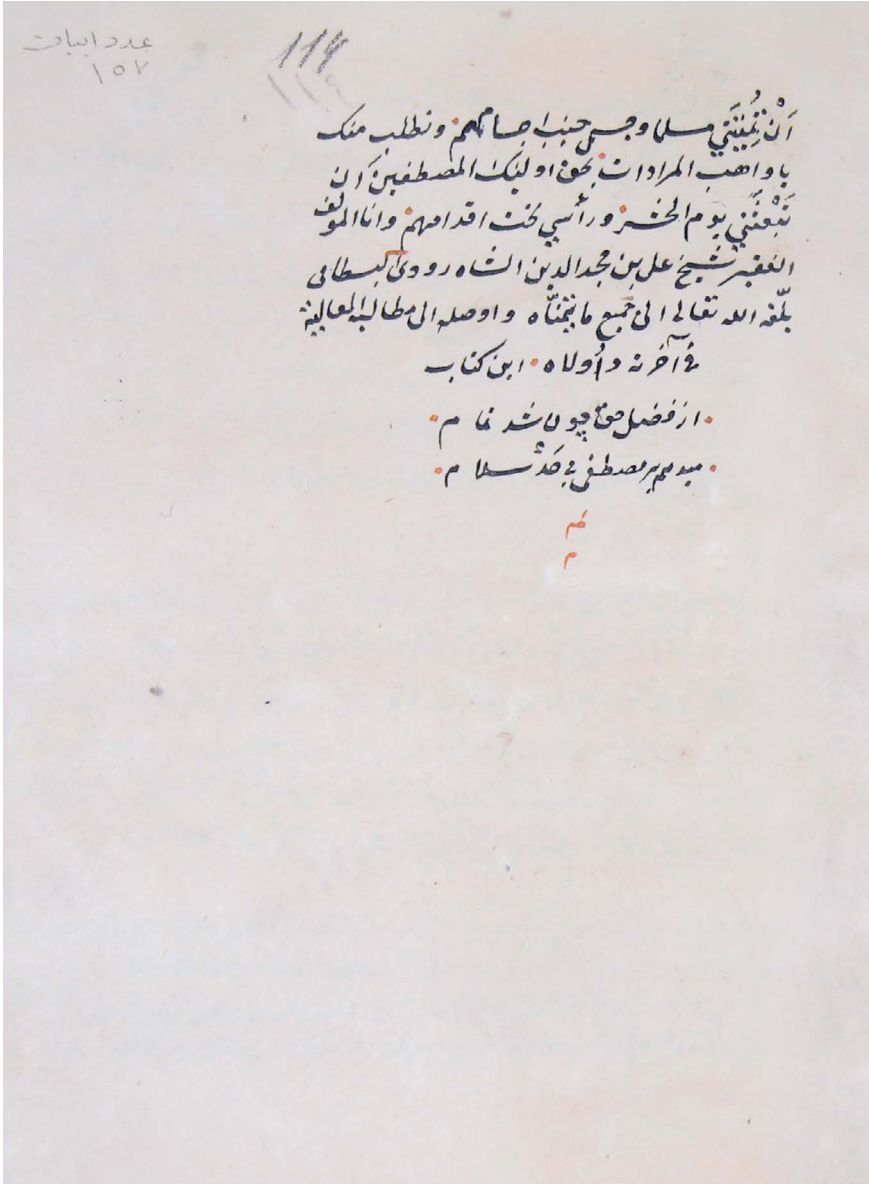 عدد ابیات
۱۵۷
114
۱۱٤
اَنْ تُمِيْتَنِي مسلما وجسمي جنب اجسامهم ونطلب منك
يا واهب المرادات بحق اوليك المصطفين اَن
تَبْعَثَنِي يوم الحشر ورأسي تحت اقدامهم وانا المؤلف
الفقير شيخ على بن مجد الدين الشاهرودى البسطامى
بلّغه الله تعالى الى جميع ما يتمنّاه واوصله الى مطالبه العالية
في آخرته وأولاه اين كتاب
از فضل حق چون شد تمام
ميدهم بر مصطفى صد سلام
تم
م